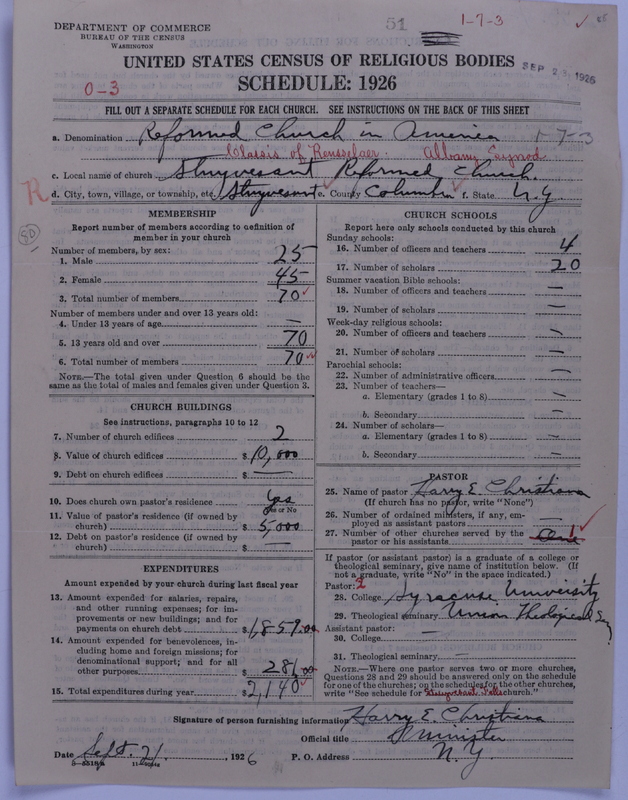 DEPARTMENT OF COMMERCE
BUREAU OF THE CENSUS
WASHINGTON
51
1-7-3
UNITED STATES CENSUS OF RELIGIOUS BODIES
SEP 23 1926
SCHEDULE: 1926
0-3
FILL OUT A SEPARATE SCHEDULE FOR EACH CHURCH. SEE INSTRUCTIONS ON THE BACK OF THIS SHEET
a. Denomination Reformed Church in America 1-7-3
Classis of Rensselaer Albany Synod
c. Local name of church Stuyvesant Reformed Church.
R d. City, town, village, or township, etc. Stuyvesant e. County Columbia f. State N.Y.
MEMBERSHIP
Report number of members according to definition of
member in your church
Number of members, by sex:
1. Male 25
2. Female 45
3. Total number of members 70
Number of members under and over 13 years old:
4. Under 13 years of age —
5. 13 years old and over 70
6. Total number of members 70
NOTE.—The total given under Question 6 should be the
same as the total of males and females given under Question 3.
CHURCH BUILDINGS
See instructions, paragraphs 10 to 12
7. Number of church edifices 2
8. Value of church edifices $ 10,000
9. Debt on church edifices $ —
10. Does church own pastor's residence Yes
Yes or No
11. Value of pastor's residence (if owned by
church) $ 5,000
12. Debt on pastor's residence (if owned by
church) $ —
EXPENDITURES
Amount expended by your church during last fiscal year
13. Amount expended for salaries, repairs,
and other running expenses; for im-
provements or new buildings; and for
payments on church debt $ 1,859.00
14. Amount expended for benevolences, in-
cluding home and foreign missions; for
denominational support; and for all
other purposes $ 281.00
15. Total expenditures during year $ 2,140
CHURCH SCHOOLS
Report here only schools conducted by this church
Sunday schools:
16. Number of officers and teachers 4
17. Number of scholars 20
Summer vacation Bible schools:
18. Number of officers and teachers —
19. Number of scholars —
Week-day religious schools:
20. Number of officers and teachers —
21. Number of scholars —
Parochial schools:
22. Number of administrative officers —
23. Number of teachers—
a. Elementary (grades 1 to 8) —
b. Secondary —
24. Number of scholars—
a. Elementary (grades 1 to 8) —
b. Secondary —
PASTOR
25. Name of pastor Harry E. Christiana
(If church has no pastor, write "None")
26. Number of ordained ministers, if any, em-
ployed as assistant pastors —
27. Number of other churches served by the
pastor or his assistants One
If pastor (or assistant pastor) is a graduate of a college or
theological seminary, give name of institution below. (If
not a graduate, write "No" in the space indicated.)
Pastor: 2
28. College Syracuse University
29. Theological seminary Union Theological Sem
Assistant pastor:
30. College —
31. Theological seminary —
NOTE.—Where one pastor serves two or more churches,
Questions 28 and 29 should be answered only on the schedule
for one of the churches; on the schedules for the other churches,
write "See schedule for Stuyvesant Falls church."
Signature of person furnishing information Harry E. Christiana
Official title Minister
Date Sept. 21, 1926 P. O. Address N.Y.